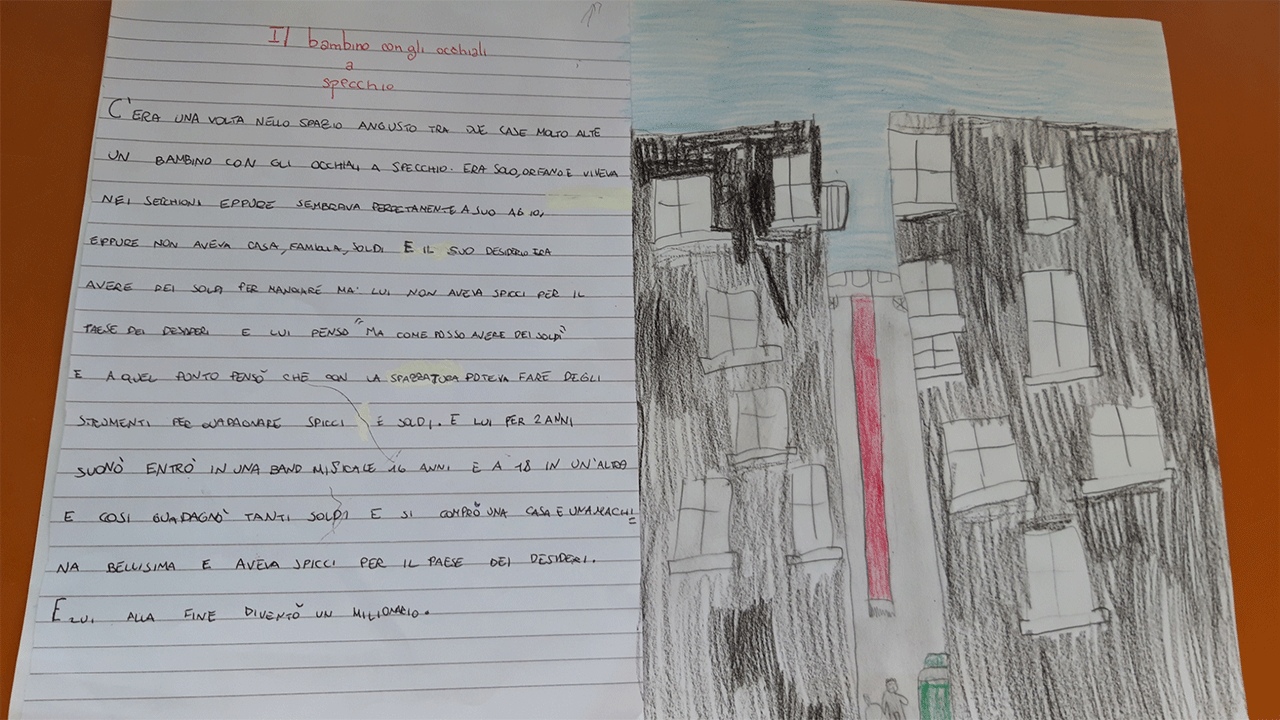 Il bambino con gli occhiali
a
specchio
C'ERA UNA VOLTA NELLO SPAZIO ANGUSTO TRA DUE CASE MOLTO ALTE
UN BAMBINO CON GLI OCCHIALI A SPECCHIO. ERA SOLO, ORFANO E VIVEVA
NEI SECCHIONI EPPURE SEMBRAVA PERFETAMENTE A SUO AGIO,
EPPURE NON AVEVA CASA, FAMIGLIA, SOLDI E IL SUO DESIDERIO ERA
AVERE DEI SOLDI PER MANGIARE MA LUI NON AVEVA SPICCI PER IL
PAESE DEI DESIDERI E LUI PENSO "MA COME POSSO AVERE DEI SOLDI"
E A QUEL PUNTO PENSÒ CHE CON LA SPAZZATURA POTEVA FARE DEGLI
STRUMENTI PER GUADAGNARE SPICCI E SOLDI. E LUI PER 2 ANNI
SUONÒ ENTRÒ IN UNA BAND MUSICALE 16 ANNI E A 18 IN UN'ALTRA
E COSI GUADAGNÒ TANTI SOLDI E SI COMPRÒ UNA CASA E UNA MACHI=
NA BELLISIMA E AVEVA SPICCI PER IL PAESE DEI DESIDERI.
E LUI ALLA FINE DIVENTÒ UN MILIONARIO.